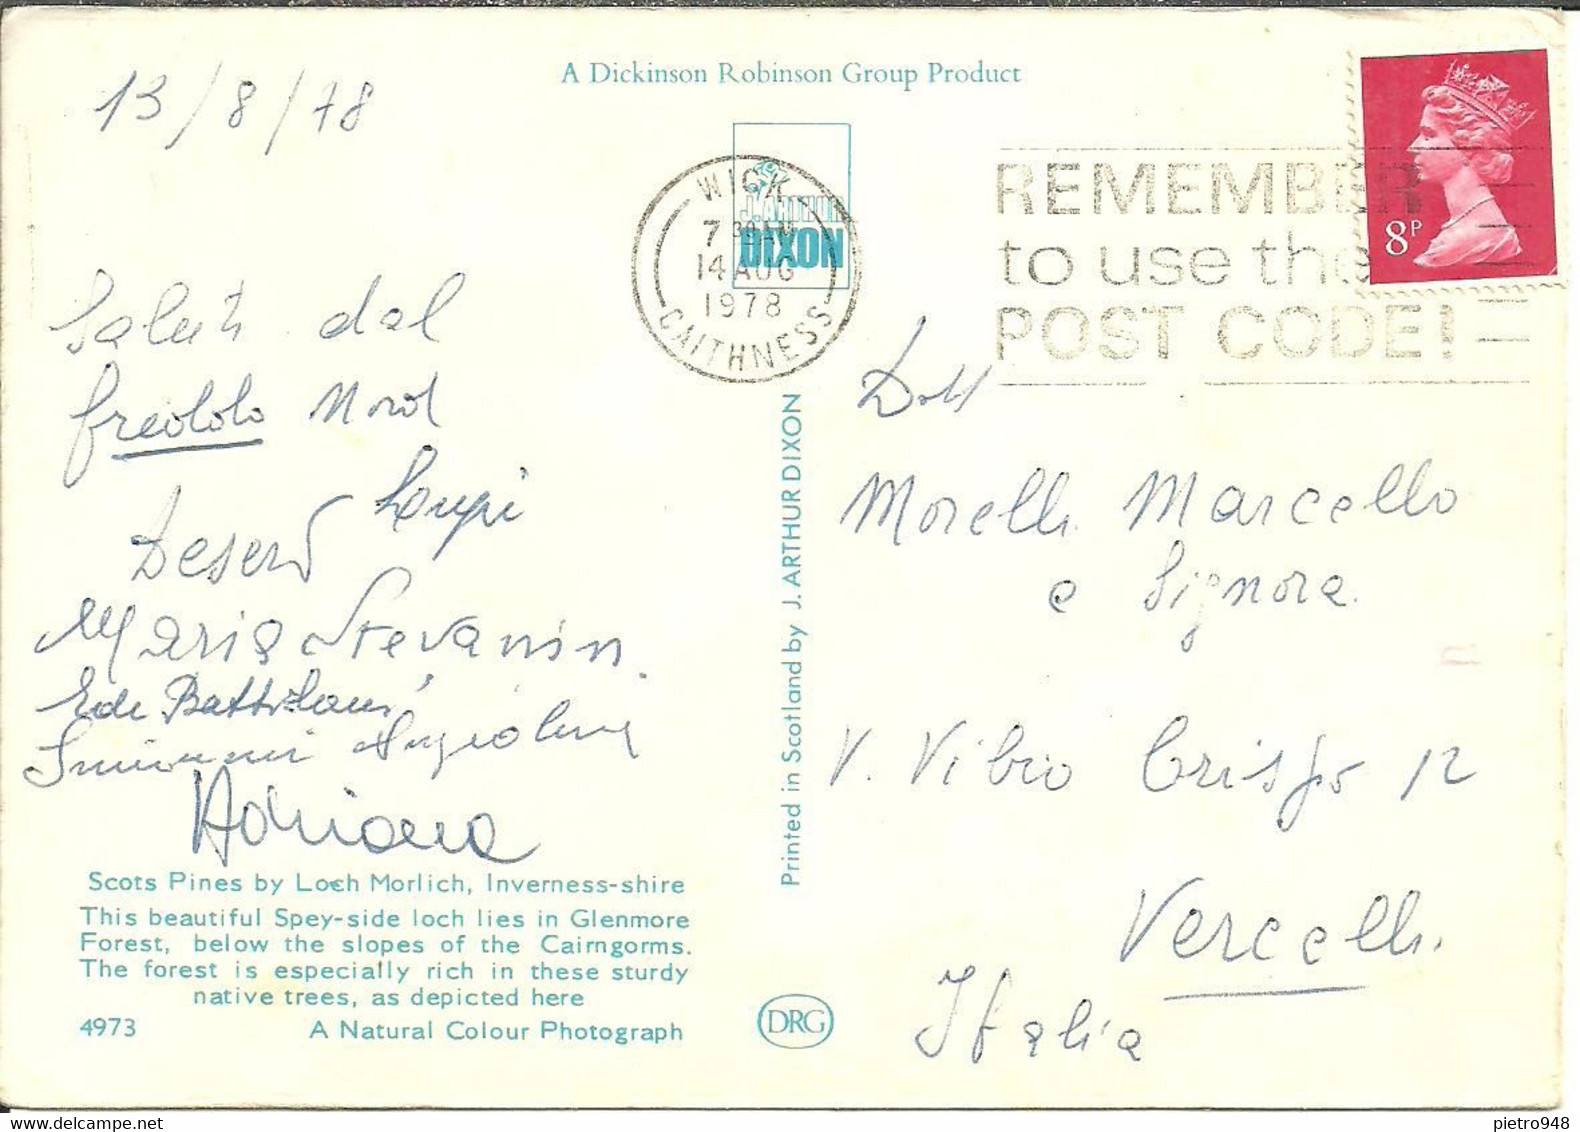 A Dickinson Robinson Group Product
13/8/78
WICK
7 30 AM
14 AUG
1978
CAITHNESS
J. ARTHUR
DIXON
REMEMBER
to use the
POST CODE!
8P
Saluti dal
freddo Nord
Luigi
Maria Stevanin
Ede Battistani
Adriana
Dott
Morelli Marcello
e Signora
V. Vibio Crispo 12
Vercelli
Italia
Printed in Scotland by J. ARTHUR DIXON
Scots Pines by Loch Morlich, Inverness-shire
This beautiful Spey-side loch lies in Glenmore
Forest, below the slopes of the Cairngorms.
The forest is especially rich in these sturdy
native trees, as depicted here
4973 A Natural Colour Photograph
DRG
www.delcampe.net
pietro948